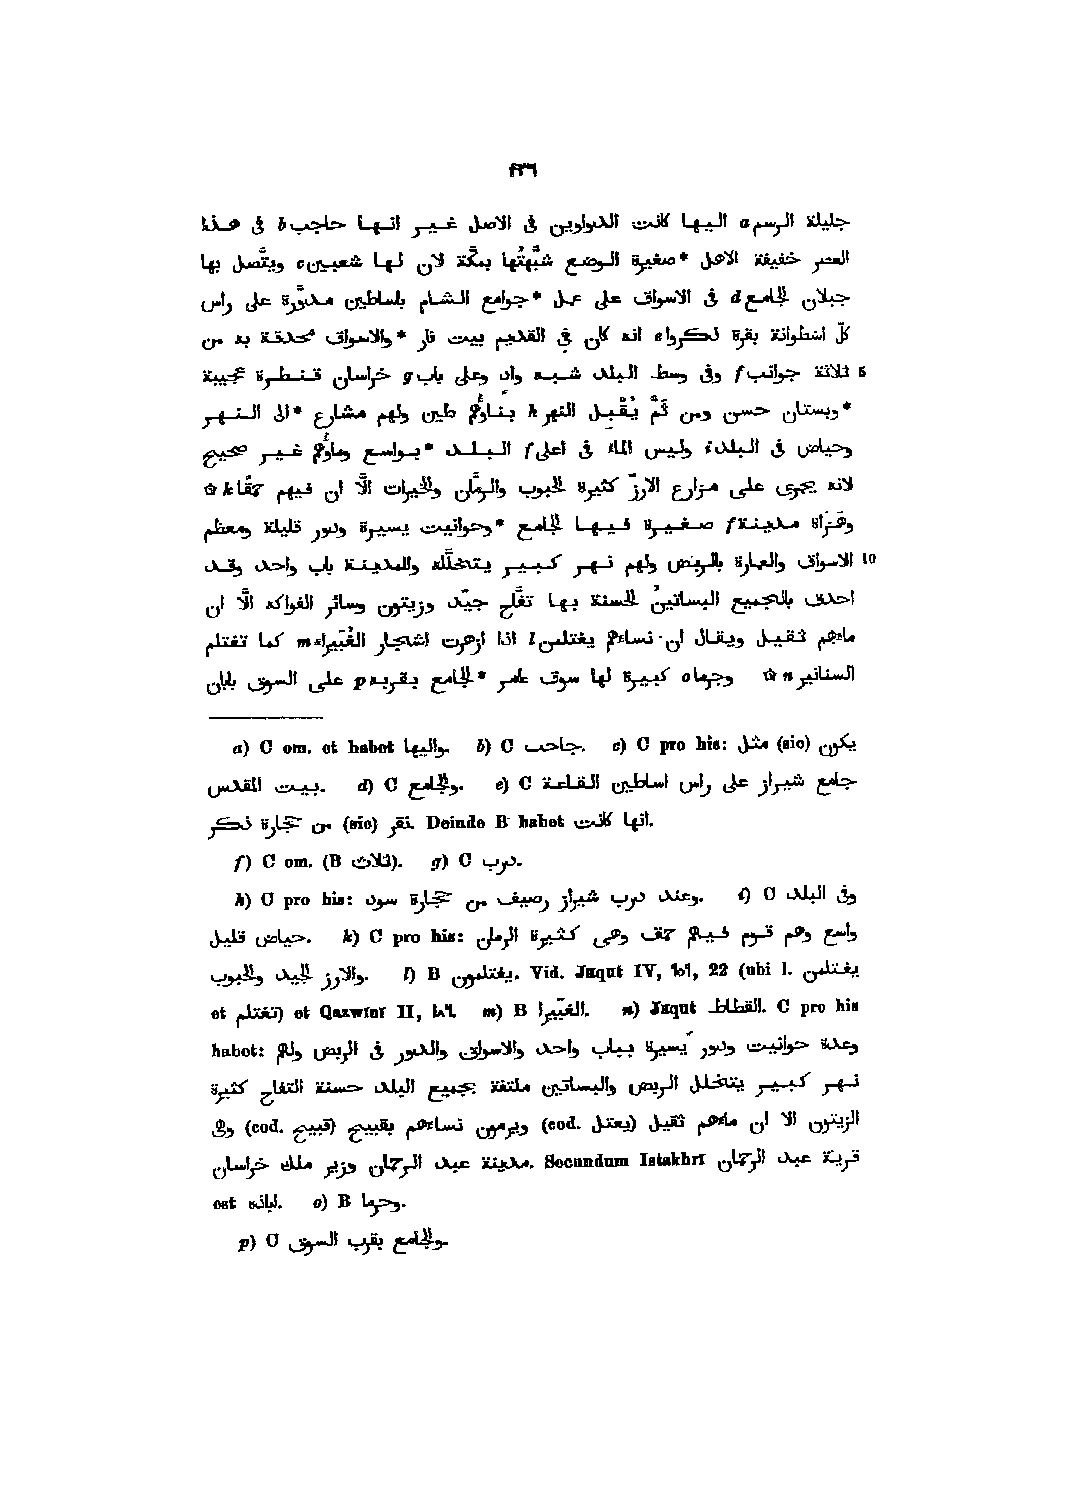 ٤٣٦
جليلة الرسم a اليها كانت الدواوين فى الاصل غير انها حاجب b فى هذا
العصر خفيفة الاهل *صغيرة الوضع شبّهتُها بمكّة لان لها شعبين c ويتّصل بها
جبلان الجامع d فى الاسواق على عمل *جوامع الشام باساطين مدوَّرة على راس
كلّ اسْطوانة بقرة ذكروا e انه كان فى القديم بيت نار *والاسواق محدقة به من
5 ثلاثة جوانب f وفى وسط البلد شبه وادٍ وعلى باب g خراسان قنطرة عجيبة
*وبستان حسن ومن ثَمَّ يُقْبِل النهر h بناؤُهم طين ولهم مشارع *الى النهر
وحياض فى البلد i وليس الماء فى اعلى f البلد *بواسع وماؤُهم غير صحيح
لانه يجرى على مزارع الارزّ كثيرة الحبوب والرمَّان والخيرات الَّا ان فيهم حمقًا k ۞
وهَرَاة مدينة f صغيرة فيها الجامع *وحوانيت يسيرة ودور قليلة ومعظم
10 الاسواق والعمارة بالربض ولهم نهر كبير يتخلَّله وللمدينة باب واحد وقد
احدق بالجميع البساتينُ الحسنة بها تفَّاح جيّد وزيتون وسائر الفواكه الَّا ان
ماءهم ثقيل ويقال ان نساءهم يغتلمن l اذا ازهرت اشجار الغُبَيراء m كما تغتلم
السنانير n ۞ وجرما o كبيرة لها سوق عامر *الجامع بقربه p على السوق بابان
a) C om. et habet واليها. b) C جاحب. c) C pro his: مثل (sic) يكون
جامع شيراز على راس اساطين القاعة e) C والجامع. d) C بيت المقدس.
من حجارة ذكر (sic) نقر. Deinde B habet انها كانت.
f) C om. (B ثلاث). g) C درب.
h) C pro his: وعند درب شيراز رصيف من حجارة سود. i) C وفى البلد
حياض قليل. k) C pro his: واسع وهم قوم فيهم حمق وهى كثيرة الرمان
والارز الجيد والحبوب. l) B يغتلمون. Vid. Jaqut IV, ٩٥٦, 22 (ubi l. يغتلمن
et تغتلم) et Qazwînî II, ١٨٦. m) B الغبّيرا. n) Jaqut القطاط. C pro his
habet: وعدة حوانيت ودور يسيرة بباب واحد والاسواق والدور فى الربض ولهم
نهر كبير يتخلل الربض والبساتين ملتفة بجميع البلد حسنة التفاح كثيرة
الزيتون الا ان ماءهم ثقيل (cod. يعتل) ويرمون نساءهم بقبيح (cod. قبيح) وهى
قرية عبد الرحمان Secundum Istakhrî مدينة عبد الرحمان وزير ملك خراسان.
est لبانه. o) B وحرما.
p) C والجامع بقرب السوق.